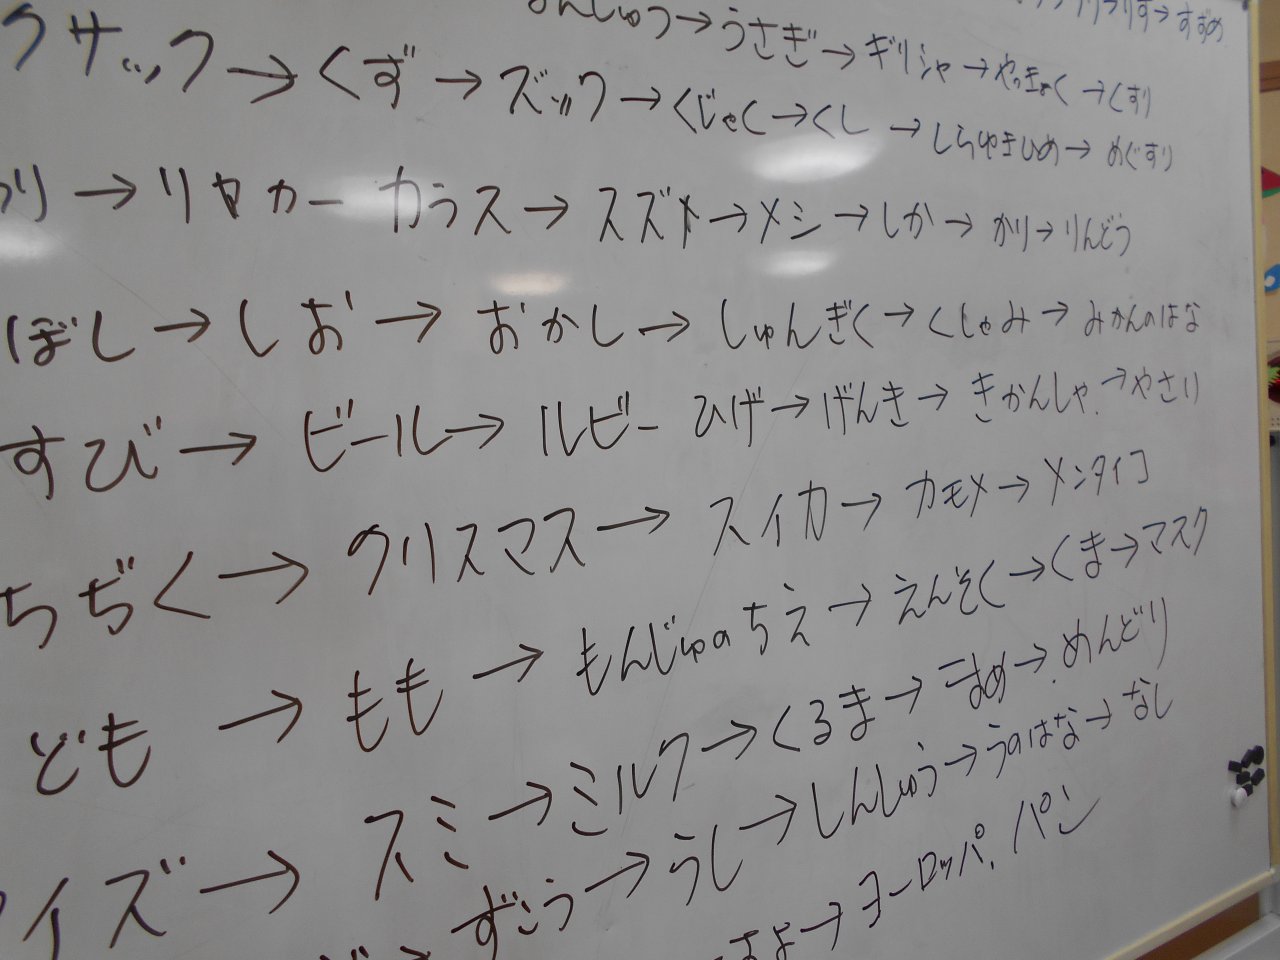 すずめ
うさぎ→ギリシャ→やっきょく→くすり
クサック→くず→ズック→くじゃく→くし→しらゆきひめ→めぐすり
→リヤカー カラス→スズメ→メシ→しか→かり→りんどう
ぼし→しお→おかし→しゅんぎく→くしゃみ→みかんのはな
すび→ビール→ルビー ひげ→げんき→きかんしゃ→やさい
ちぢく→クリスマス→スイカ→カモメ→メンタイコ
ども→もも→もんじゅのちえ→えんそく→くま→マスク
イズ→スミ→ミルク→くるま→まめ→めんどり
ずこう→うし→しんしゅう→うのはな→なし
→ヨーロッパ、パン